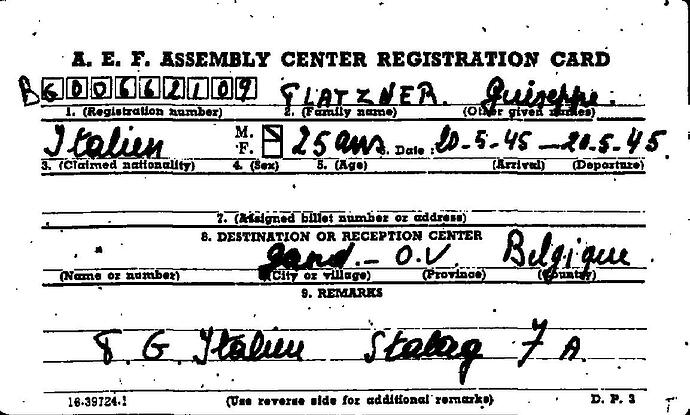 A. E. F. ASSEMBLY CENTER REGISTRATION CARD
B G00662109 PLATZNER. Guiseppe.
1. (Registration number) 2. (Family name) (Other given names)
Italien M. F. 25 ans 6. Date : 20-5-45 — 20.5.45.
3. (Claimed nationality) 4. (Sex) 5. (Age) (Arrival) (Departure)
7. (Assigned billet number or address)
8. DESTINATION OR RECEPTION CENTER
Gand. - O.V. Belgique
(Name or number) (City or village) (Province) (Country)
9. REMARKS
P. G. Italien Stalag 7 A.
16-39724-1 (Use reverse side for additional remarks) D. P. 3